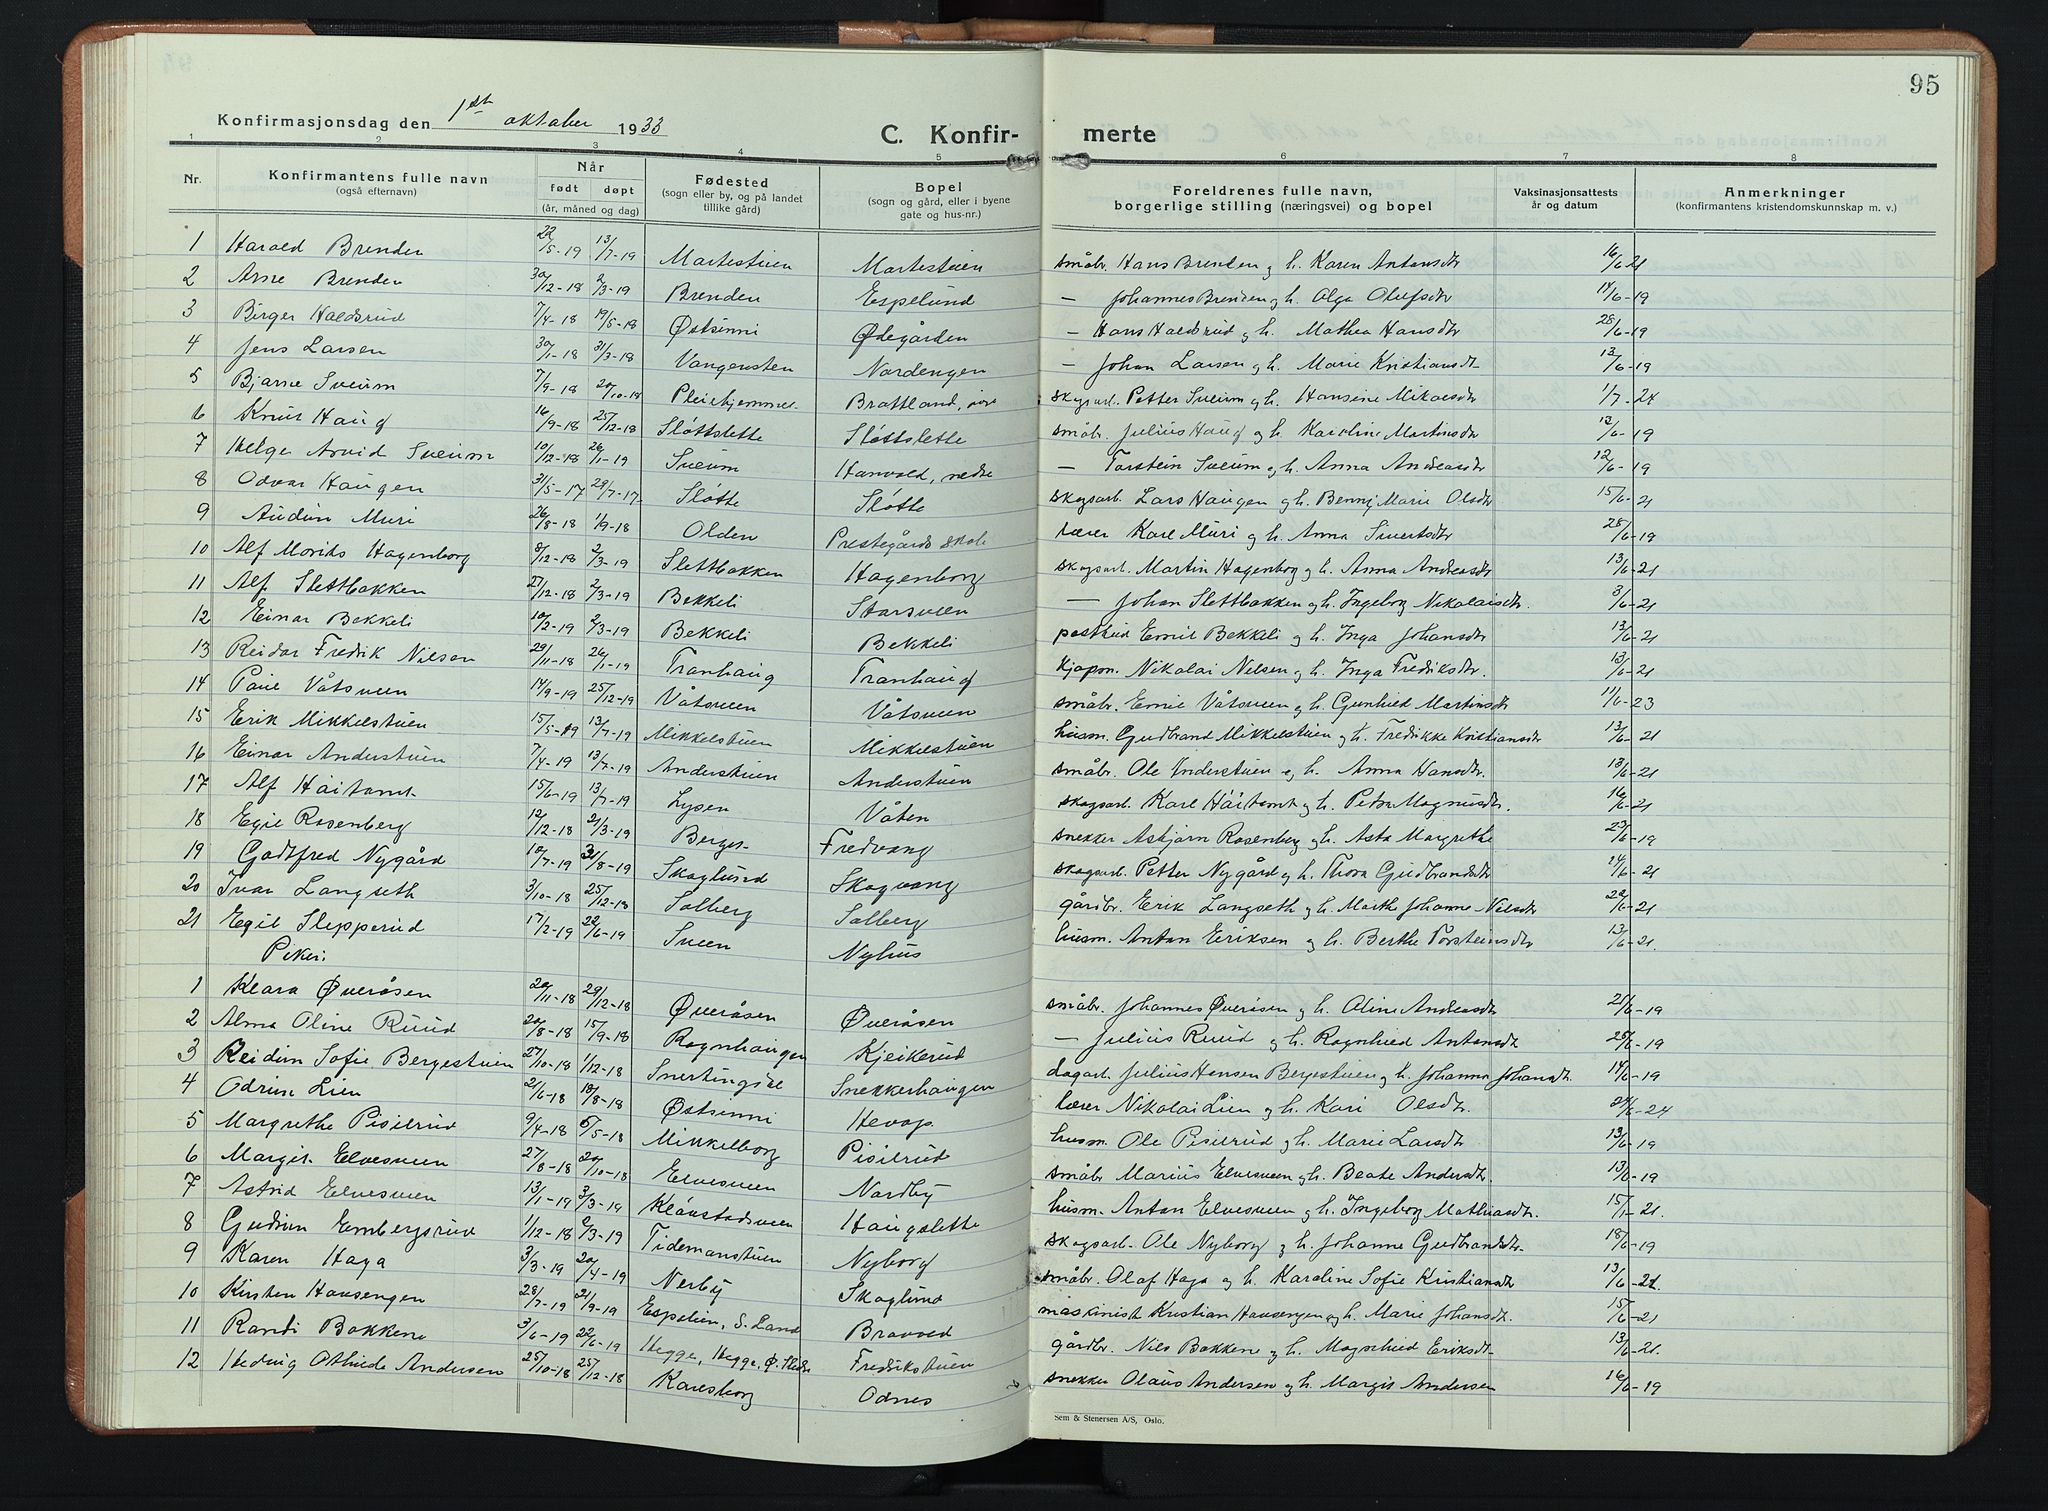 95
Konfirmasjonsdag den 1st oktober 1933 C. Konfir- merte
1 2 3 4 5 6 7 8
Nr. Konfirmantens fulle navn (også efternavn) Når født døpt (år, måned og dag) Fødested (sogn eller by, og på landet tillike gård) Bopel (sogn og gård, eller i byene gate og hus-nr.) Foreldrenes fulle navn, borgerlige stilling (næringsvei) og bopel Vaksinasjonsattests år og datum Anmerkninger (konfirmantens kristendomskunnskap m. v.)
1 Harald Brenden 22/5-19 13/7-19 Martestuen Martestuen småbr. Hans Brenden og h. Karen Antonsdtr 16/6-21
2 Arne Brenden 30/12-18 2/3-19 Brenden Espelund — Johannes Brenden og h. Olga Olufsdtr 14/6-19
3 Birger Haldsrud 7/4-18 19/5-18 Østsinni Ødegården — Hans Haldsrud og h. Mathea Hansdtr 28/6-19
4 Jens Larsen 30/1-18 31/3-18 Vangensten Nordengen — Johan Larsen og h. Marie Kristiansdtr 13/6-19
5 Bjarne Sveum 7/9-18 20/10-18 Pleiehjemmet Brattland, øvre skogsarb. Petter Sveum og h. Hansine Mikalsdtr 1/7-24
6 Knut Haug 16/9-18 25/12-18 Sløttslette Sløttslette småbr. Julius Haug og h. Karoline Martinsdtr 12/6-19
7 Helge Arvid Sveum 10/12-18 26/1-19 Sveum Hanvold, nedre — Torstein Sveum og h. Anna Andreasdtr 12/6-19
8 Odvar Haugen 31/5-17 29/7-17 Sløtte Sløtte skogsarb. Lars Haugen og h. Benny Marie Olsdtr 15/6-21
9 Audun Muri 26/8-18 1/9-18 Olden Prestegårds skole lærer Karl Muri og h. Anna Sivertsdtr 28/6-19
10 Alf Moriks Hagenborg 8/12-18 2/3-19 Slettbakken Hagenborg skogsarb. Martin Hagenborg og h. Anna Andreasdtr 13/6-21
11 Alf Slettbakken 27/12-18 2/3-19 Bekkeli Starsveen — Johan Slettbakken og h. Ingeborg Nikolaisdtr. 3/6-21
12 Einar Bekkeli 10/2-19 2/3-19 Bekkeli Bekkeli postbud Emil Bekkeli og h. Inga Johansdtr 13/6-21
13 Reidar Fredrik Nilsen 29/11-18 26/1-19 Tranhaug Tranhaug kjøpm. Nikolai Nilsen og h. Inga Fredriksdtr 13/6-21
14 Paul Våtsveen 14/9-19 25/12-19 Våtsveen Våtsveen småbr. Emil Våtsveen og h. Gunhild Martinsdtr 11/6-23
15 Erik Mikkelstuen 15/5-19 13/7-19 Mikkelstuen Mikkelstuen husm. Gudbrand Mikkelstuen og h. Fredrikke Kristiansdtr 13/6-21
16 Einar Anderstuen 7/4-19 13/7-19 Anderstuen Anderstuen småbr. Ole Anderstuen og h. Anna Hansdtr. 13/6-21
17 Alf Håitomt 15/6-19 13/7-19 Lysen Våten skogsarb. Karl Håitomt og h. Petra Magnusdtr. 16/6-21
18 Egil Rosenberg 12/12-18 2/3-19 Berget Fredvang snekker Asbjørn Rosenberg og h. Asta Margrethe 23/6-19
19 Godtfred Nygård 10/7-19 31/8-19 Skoglund Skogvang skogsarb. Petter Nygård og h. Thora Gudbrandsdtr 14/6-21
20 Ivar Langseth 3/10-18 25/12-18 Solberg Solberg gårdbr. Erik Langseth og h. Marthe Johanne Nilsdtr 22/6-21
21 Egil Slepperud 17/2-19 22/6-19 Sveen Nyhus husm. Anton Eriksen og h. Berthe Torsteinsdtr 13/6-21.
Piker:
1 Klara Øveråsen 20/11-18 29/12-18 Øveråsen Øveråsen småbr. Johannes Øveråsen og h. Oline Andreasdtr 21/6-19
2 Alma Oline Ruud 20/8-18 15/9-18 Rognhaugen Kjeikerud — Julius Ruud og h. Ragnhild Antonsdtr 25/6-19
3 Reidun Sofie Bergestuen 27/10-18 1/12-18 Snertingdal Snekkerhaugen dagarb. Julius Hansen Bergestuen og h. Johanna Johansdtr. 14/6-19
4 Odrun Lien 21/6-18 18/8-18 Østsinni Hevop. lærer Nikolai Lien og h. Kari Olsdtr. 24/6-24
5 Margrethe Pisilrud 9/4-18 5/5-18 Mikkelborg Pisilrud husm. Ole Pisilrud og h. Marie Larsdtr 13/6-19
6 Margit Elvesveen 27/8-18 20/10-18 Elvesveen Nordby småbr Marius Elvesveen og h. Beate Andersdtr. 13/6-19
7 Astrid Elvesveen 13/1-19 3/3-19 Klåvstadsveen Haugslette husm. Anton Elvesveen og h. Ingeborg Mathiasdtr. 15/1-21.
8 Gudrun Embergsrud 1/12-18 2/3-19 Tidemanstuen Nyborg skogsarb. Ole Nyborg og h. Johanne Gudbrandsdtr. 18/6-19
9 Karen Haga 3/3-19 20/4-19 Nerby Skoglund småbr. Olaf Haga og h. Karoline Sofie Kristiansdtr 13/6-21.
10 Kirsten Hausengen 28/7-19 21/9-19 Espelien, S. Land Bravold maskinist Kristian Hausengen og h. Marie Johansdtr. 15/6-21
11 Randi Bakkene 3/6-19 22/6-19 Hegge, Hegge, Ø. Slidre Fredrikstuen gårdbr. Nils Bakkene og h. Magnhild Eriksdtr 13/6-21.
12 Hedvig Othilde Andersen 25/10-18 25/12-18 Karlsborg Odnes snekker Olaus Andersen og h. Margit Andersen 16/6-19
Sem & Stenersen A/S, Oslo.